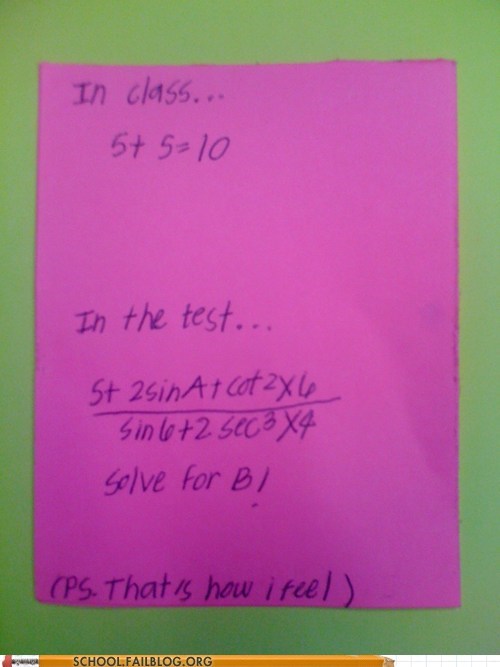 In class...
5+ 5=10
In the test...
5+ 2sinA+cot2X6
sin6+2 sec3X4
solve for B!
(PS. That is how i feel)
SCHOOL.FAILBLOG.ORG